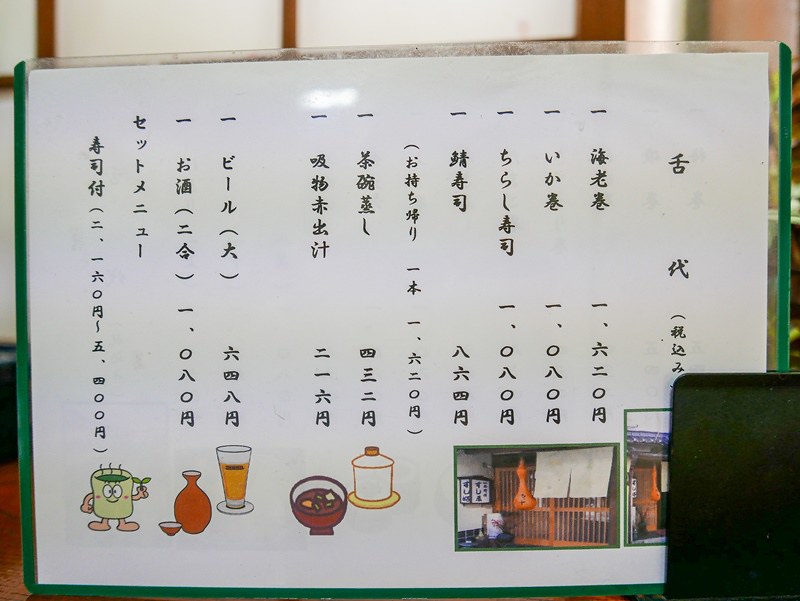 舌代(税込み
一 海老巻 一、六二〇円
一 いか巻 一、〇八〇円
一 ちらし寿司 一、〇八〇円
一 鯖寿司 八六四円
(お持ち帰り 一本 一、六二〇円)
一 茶碗蒸し 四三二円
一 吸物赤出汁 二一六円
一 ビール(大) 六四八円
一 お酒(二合) 一、〇八〇円
セットメニュー
寿司付(二、一六〇円〜五、四〇〇円)